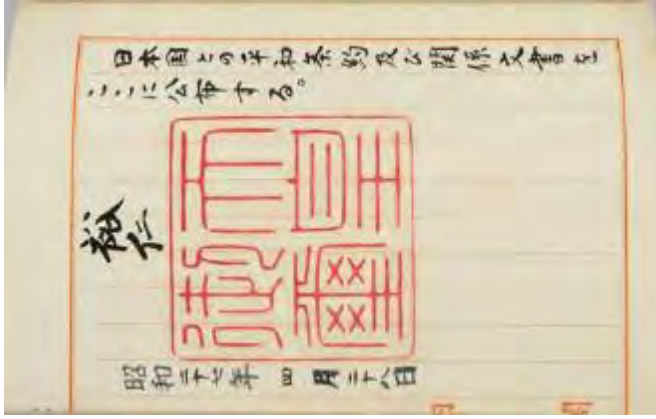 日本国との平和条約及び関係文書を
ここに公布する。
裕仁
天皇
御璽
昭和二十七年四月二十八日